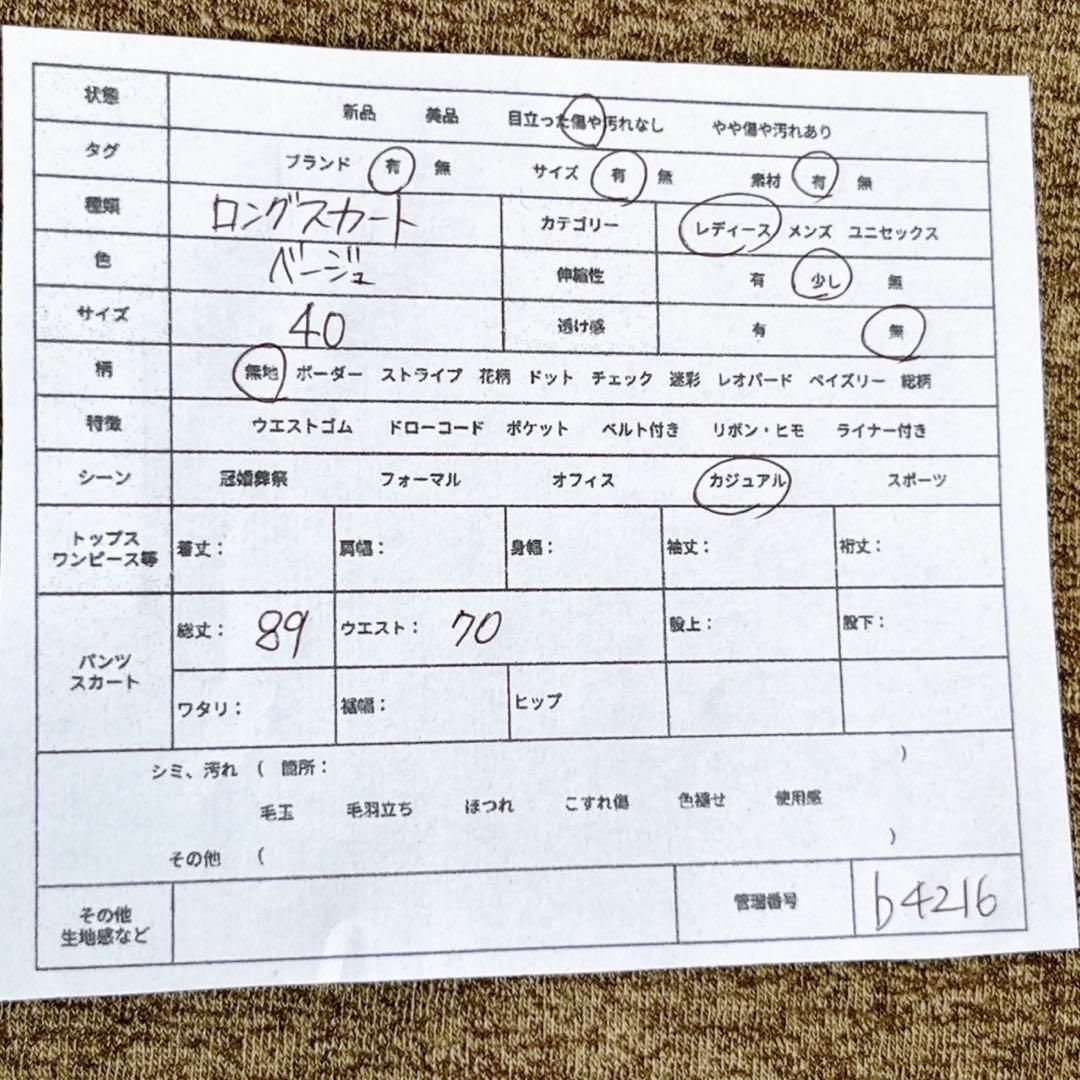 状態 新品 美品 目立った傷や汚れなし やや傷や汚れあり
タグ ブランド 有 無 サイズ 有 無 素材 有 無
種類 ロングスカート カテゴリー レディース メンズ ユニセックス
色 ベージュ 伸縮性 有 少し 無
サイズ 40 透け感 有 無
柄 無地 ボーダー ストライプ 花柄 ドット チェック 迷彩 レオパード ペイズリー 総柄
特徴 ウエストゴム ドローコード ポケット ベルト付き リボン・ヒモ ライナー付き
シーン 冠婚葬祭 フォーマル オフィス カジュアル スポーツ
トップス
ワンピース等 着丈： 肩幅： 身幅： 袖丈： 裄丈：
総丈： 89 ウエスト： 70 股上： 股下：
パンツ
スカート
ワタリ： 裾幅： ヒップ
シミ、汚れ ( 箇所： )
毛玉 毛羽立ち ほつれ こすれ傷 色褪せ 使用感
その他 ( )
その他
生地感など 管理番号 b4216